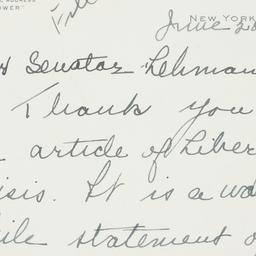 ADDRESS
OWER"
NEW YORK
June 2
Senator Lehman
Thank you
article of Liber
isis. It is a wo
ile statement o